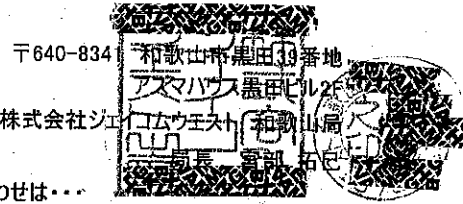 〒640-834 和歌山市黒田39番地
アズマハウス黒田ビル2F
株式会社ジェイコムウエスト 和歌山局
局長 宮部 拓已
わせは・・・
之印